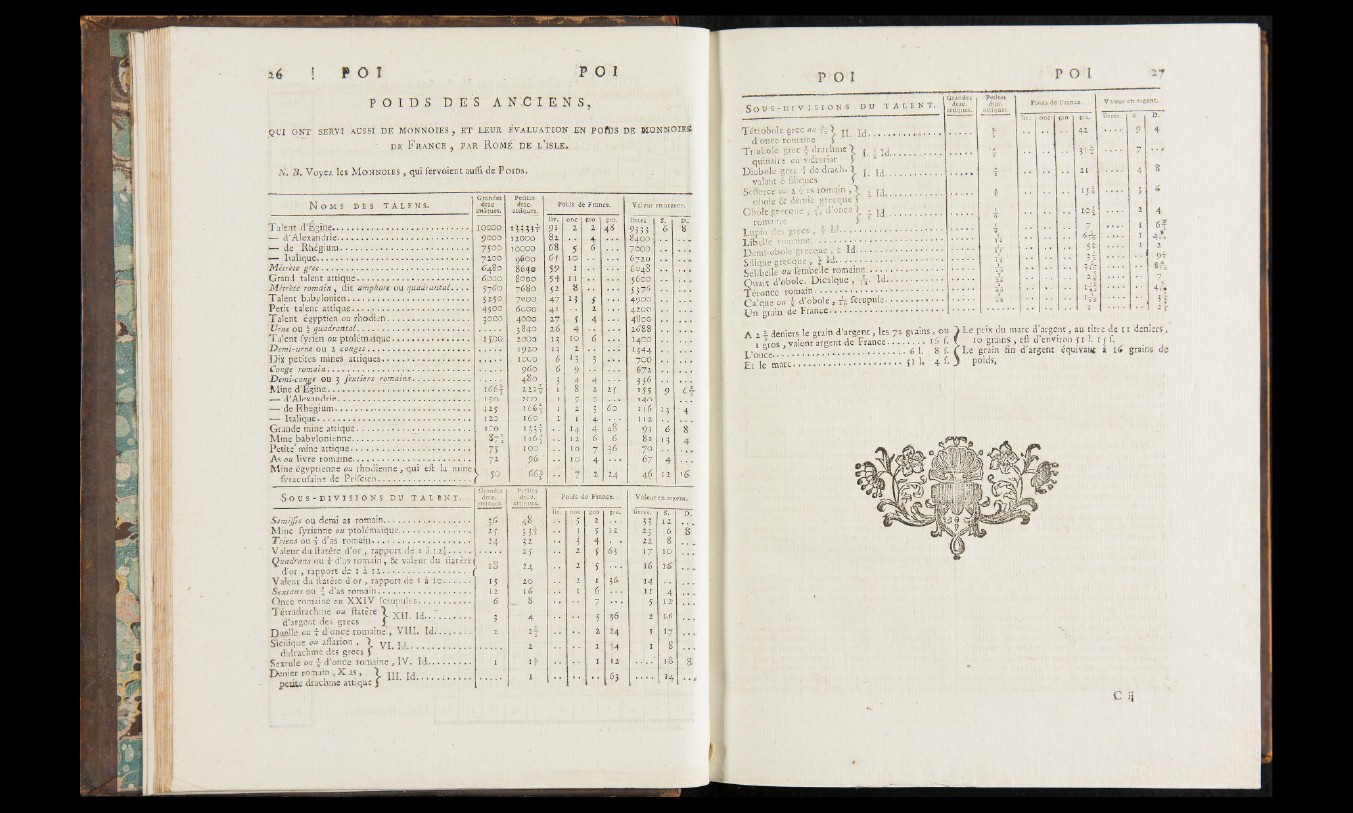 26 ! POI POI
POIDS DES ANCIENS,
QUI ONT SERVI AUSSI DE MONNOIES, ET LEUR ÉVALUATION EN POIDS DE MONNOIES
DE FRANCE, PAR ROMÉ DE L'ISLE.
N. B. Voyez les MONNOIES, qui servoient aussi de POIDS.
NOMS DES TALENS. Grandes drac. attiques. Petites drac. attiques. Poids de France. Valeur en argent.
liv. onc gro gra. livres. S. D.
Talent d'Égine 10000 13333⅓ 91 2 2 48 9333 6 8
— d'Alexandrie 9000 12000 82 .. 4 ... 8400
— de Rhégium 7500 10000 68 5 6 ... 7000
— Italique 7200 9600 65 10 .. ... 6720
Métrète grec 6480 8640 59 1 .. ... 6048
Grand talent attique 6000 8000 54 11 .. ... 5600
Métrète romain, dit amphore ou quadrantal 5760 7680 52 8 .. ... 5376
Talent babylonien 5250 7000 47 13 5 ... 4900
Petit talent attique 4500 6000 41 .. 2 ... 4200
Talent égyptien ou rhodien 3000 4000 27 5 4 ... 2800
Urne ou ½ quadrantal ..... 3840 26 4 .. ... 2688
Talent syrien ou ptolémaïque 1500 2000 13 10 6 ... 1400
Demi-urne ou 2 conges ..... 1920 13 2 .. ... 1344
Dix petites mines attiques ..... 1000 6 13 3 ... 700
Conge romain ..... 960 6 9 .. ... 672
Demi-conge ou 3 sextiers romains ..... 480 3 4 4 ... 336
Mine d'Égine 166⅔ 222 1 8 2 25 155 9 6⅔
— d'Alexandrie 150 200 1 5 7 ... 140
— de Rhégium 125 166⅔ 1 2 3 60 116 13 4
— Italique 120 160 1 1 4 ... 112
Grande mine attique 100 133⅓ .. 14 4 48 93 6 8
Mine babylonienne 87½ 116⅔ .. 12 6 6 81 13 4
Petite mine attique 75 100 .. 10 7 36 70
As ou livre romaine 72 96 .. 10 4 ... 67 4
Mine égyptienne ou rhodienne, qui est la mine
syracusaine de Priscien 50 66⅔ .. 7 2 24 46 12 16
SOUS-DIVISIONS DU TALENT. Grandes drac. attiques. Petites drac. attiques. Poids de France. Valeur en argent.
liv. onc gro gra. livres. S. D.
Semissis ou demi as romain 36 48 .. 5 2 .. 33 12
Mine syrienne ou ptolémaïque 25 33⅓ .. 3 5 12 23 6 8
Triens ou ⅓ d'as romain 24 32 .. 3 4 .. 22 8
Valeur du statère d'or, rapport de 1 à 12½ ..... 25 .. 2 5 63 17 10
Quadrans ou ¼ d'as romain, & valeur du statère
d'or, rapport de 1 à 12 18 24 .. 2 5 ... 16 16
Valeur du statère d'or, rapport de 1 à 10 15 20 .. 2 1 36 14
Sextans ou ⅙ d'as romain 12 16 .. 1 6 ... 11 4
Once romaine ou XXIV scrupules 6 8 .. .. 7 ... 5 12
Tétradrachme ou statère
d'argent des grecs } XII. Id. 3 4 .. .. 3 36 2 16
Duelle ou ⅓ d'once romaine, VIII. Id. 2 2⅔ .. .. 2 24 1 17
Sicilique ou assarion,
didrachme des grecs } VI. Id. ..... 2 .. .. 1 54 1 8
Sextule ou ⅙ d'once romaine, IV. Id. 1 1⅓ .. .. 1 12 .... 18 8
Denier romain, X as,
petite drachme attique } III. Id. ..... 1 .. .. .. 63 .... 14
POI POI 27
SOUS-DIVISIONS DU TALENT. Grandes drac. attiques. Petites drac. attiques. Poids de France. Valeur en argent.
liv. onc gro gra. livres. S. D.
Tétrobole grec ou
d'once romaine } II. Id. 42 9 4
Triobole grec ½ drachme
quinaire ou victoriat } I. ½ Id. 31½ 7
Diobole grec ⅓ de drach.
valant 8 siliques } I. Id. 21 4 8
Sesterce ou 2 ½ as romain,
obole & demie grecque } Id. 3
Obole grecque, d'once
romaine } ½ Id. 10½ 2 4
Lupin des grecs, Id. 7 1
Libelle romaine 1
Demi-obole grecque, Id. 1 2
Silique grecque, Id.
Selibelle ou sembelle romaine
Quart d'obole. Dicalque, Id. 7
Téronce romain
Calque ou d'obole, scrupule
Un grain de France 1
A 2 deniers le grain d'argent, les 72 grains, ou
1 gros, valent argent de France 16 s.
L'once 6 l. 8 s.
Et le marc 51 l. 4 s.
Le prix du marc d'argent, au titre de 11 deniers,
10 grains, est d'environ 51 l. 15 s.
Le grain fin d'argent équivaut à 16 grains de
poids,
C ij